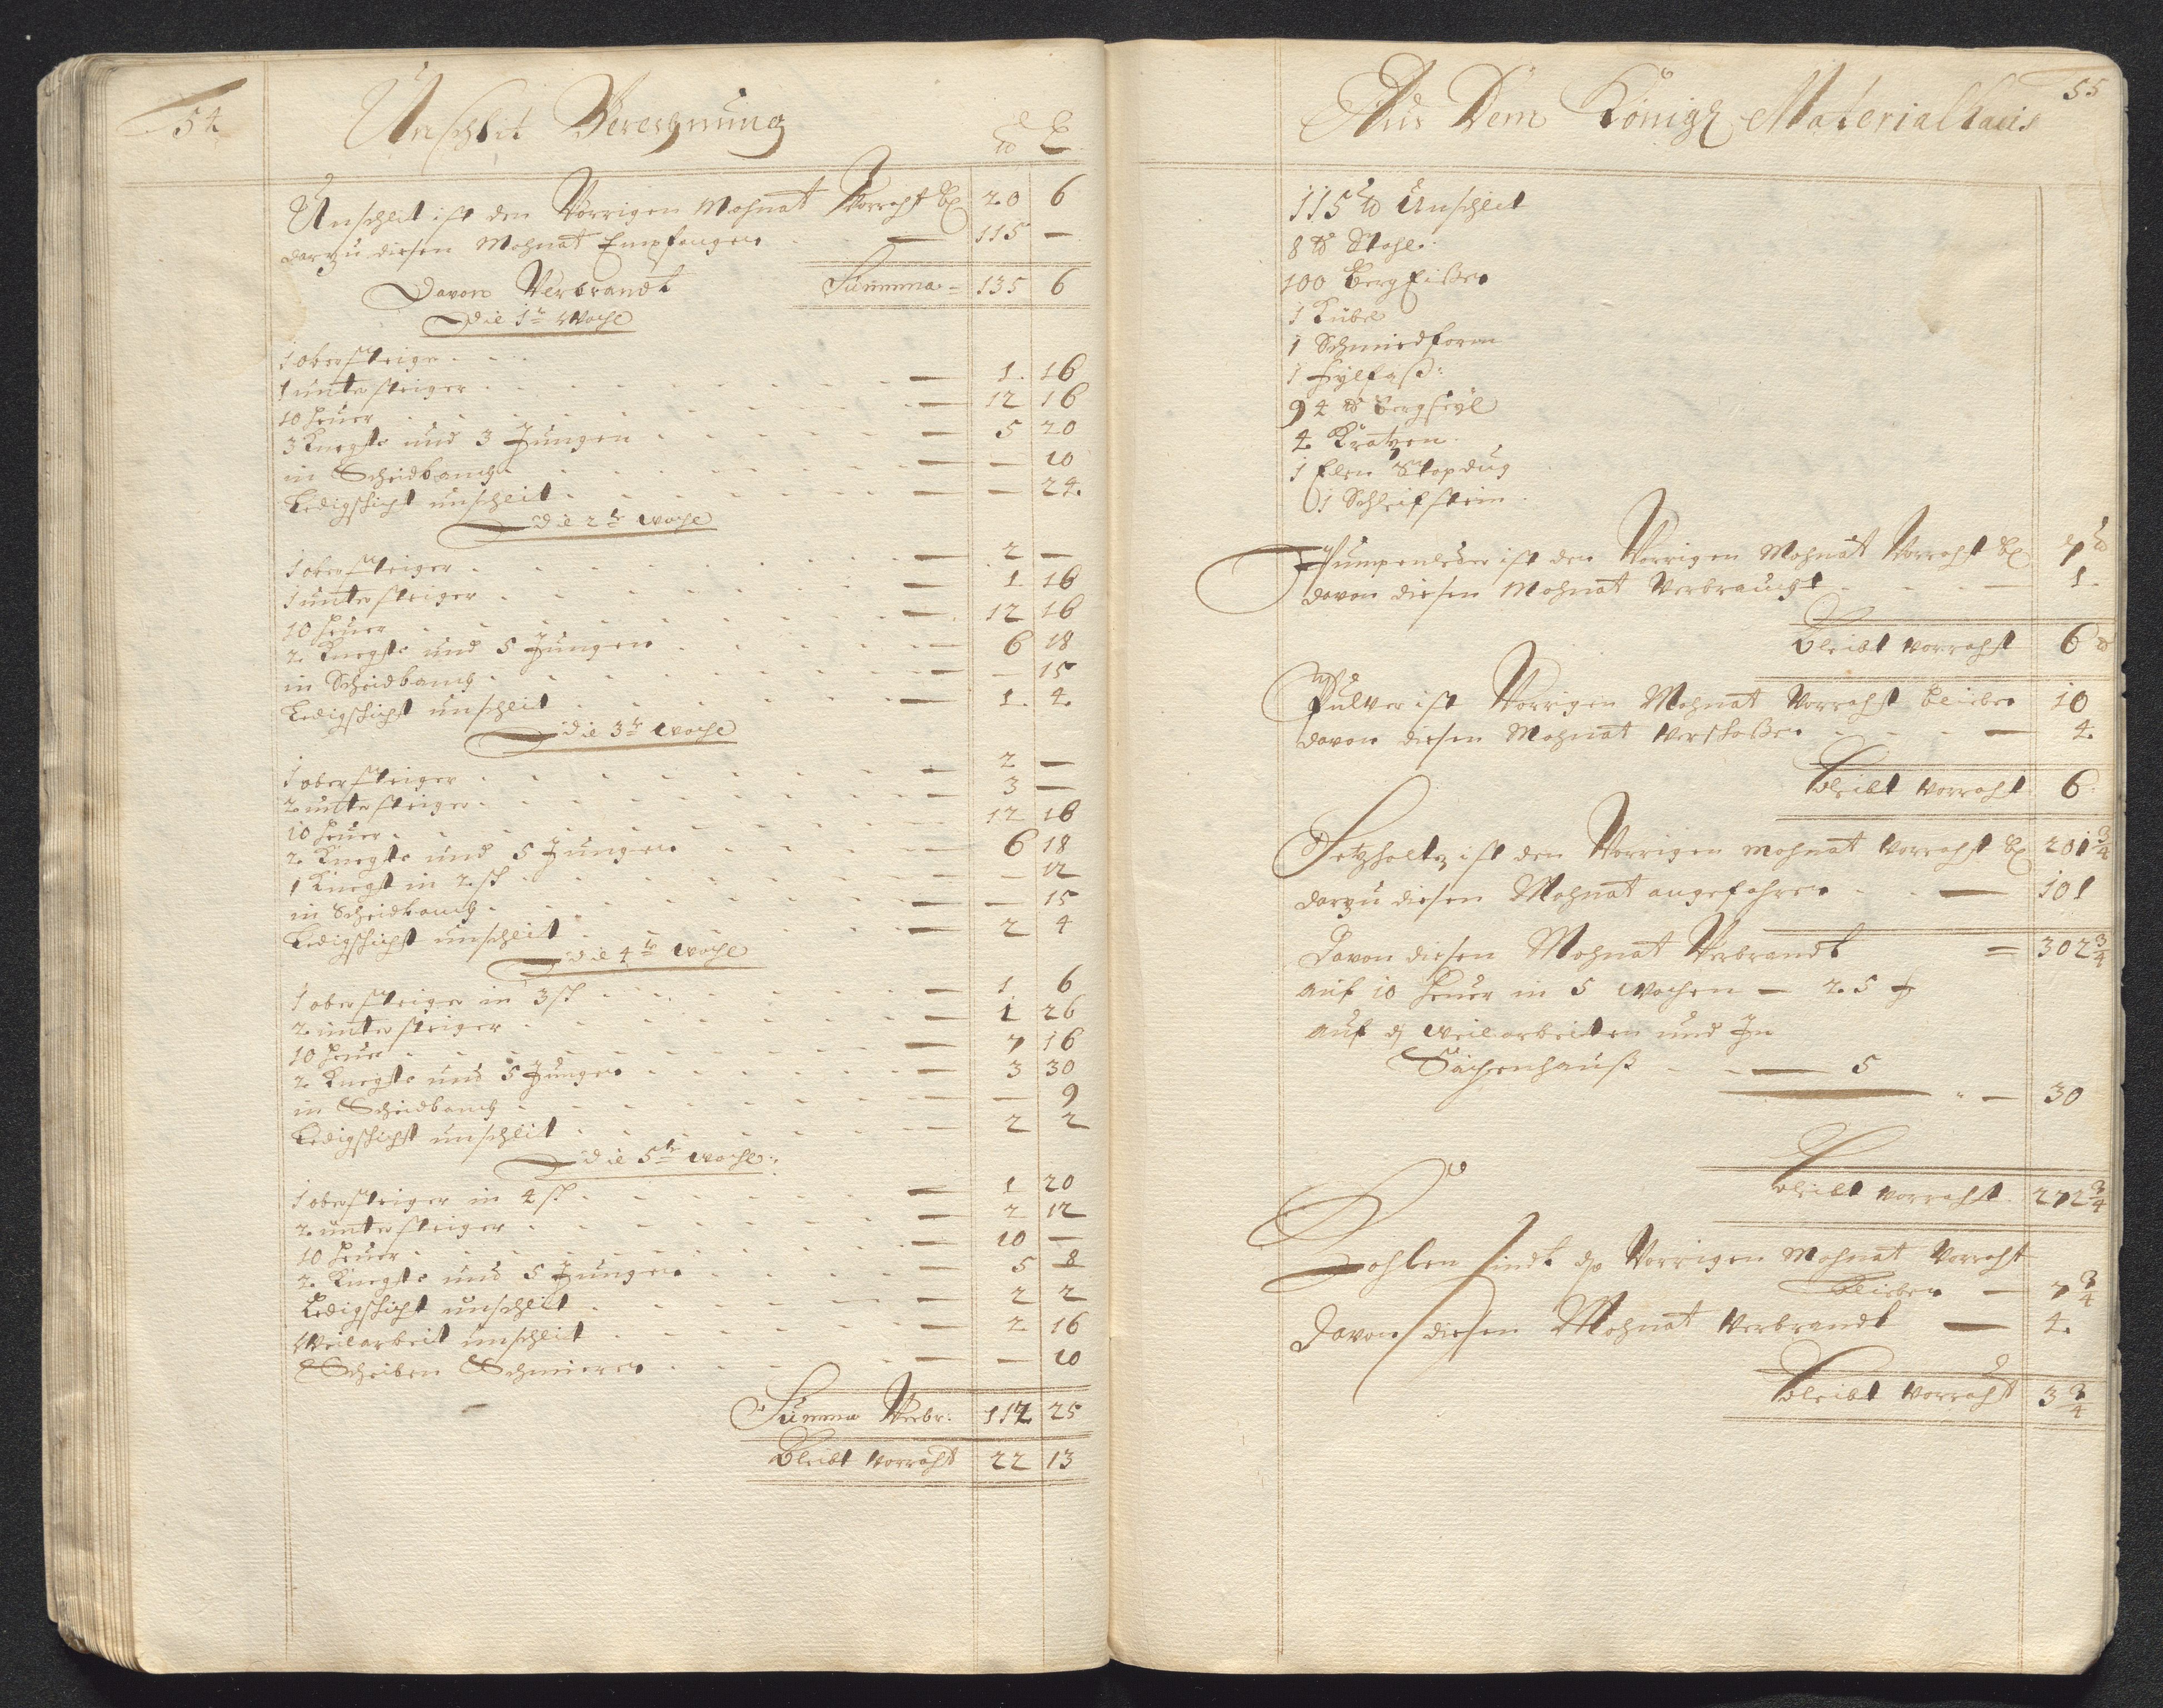 54
Unschlit Berechnung
℔ L
Unschleit ist den Vorrigen Mohnat Vorraht bl 20 6
darzu diesen Mohnat Empfangen 115 —
Summa = 135 6
Davon Verbrandt
Die 1te Woche
1 obersteiger
1 untersteiger 1 16
10 heuer 12 16
3 Knegte und 3 Jungen 5 20
in Scheidbanck — 10
Ledigschicht unschleit — 24
Die 2te woche
1 obersteiger 2 —
1 untersteiger 1 16
10 heuer 12 16
2 Knegte und 5 Jungen 6 18
in Scheidbanck — 15
Ledigschicht unschleit 1 4
Die 3te woche
1 obersteiger 2 —
2 untersteiger 3 —
10 heuer 12 16
2 Knegte und 5 Jungen 6 18
1 Knegt in 2 sch — 12
in Scheidbanck — 15
Ledigschicht unschleit 2 4
Die 4te woche
1 obersteiger in 3 sch 1 6
2 untersteiger 1 26
10 heuer 7 16
2 Knegte und 5 Jungen 3 30
in Scheidbanck — 9
Ledigschicht unschleit 2 2
Die 5te woche
1 obersteiger in 4 sch 1 20
2 untersteiger 2 12
10 heuer 10 —
2 Knegte und 5 Jungen 5 8
Ledigschicht unschleit 2 2
Weilarbeit unschleit 2 16
Scheiben Schmieren — 10
Summa Verbr: 112 25
Bleibt vorraht 22 13
55
Aus Dem Königl Materialhaus
115 ℔ Unschleit
8 ℔ Stahl
100 Bergeißen
1 Kübel
1 Schmiedform
1 Fylfaß
94 ℔ Bergseyl
4 Kratzen
1 Elen Stopdug
1 Schleifstein
Pumpenleder ist den Vorrigen Mohnat Vorraht bl 7 ℔
davon diesen Mohnat Verbraucht 1
bleibt vorraht 6 ℔
Pulver ist Vorrigen Mohnat Vorraht blieben 10
davon diesen Mohnat verschoßen 4
bleibt vorraht 6
Setzholtz ist den Vorrigen mohnat vorraht bl 201 3/4
darzu diesen Mohnat angefahren 101
Davon diesen Mohnat Verbrandt = 302 3/4
auf 10 heuer in 5 wochen — 25
auf weilarbeiten und In
Zächenhauß — 5
— 30
bleibt vorraht 272 3/4
Kohlen sindt Vorrigen Mohnat Vorraht
blieben — 7 3/4
Davon diesen Mohnat verbrandt — 4
bleibt vorraht 3 3/4